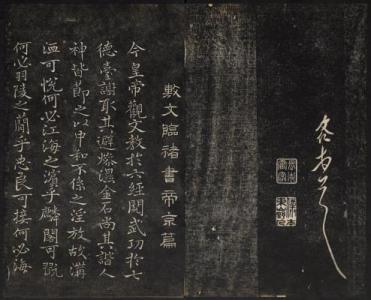 敷文臨褚書帝京篇
今皇帝觀文教扵六經閱武功扵七
德臺謝取其避燥濕金石尚其諧人
神皆節之以中和不係之淫放故溝
洫可悅何必江海之濱乎麟閣可翫
何必羽陵之蕳乎忠良可接何必海